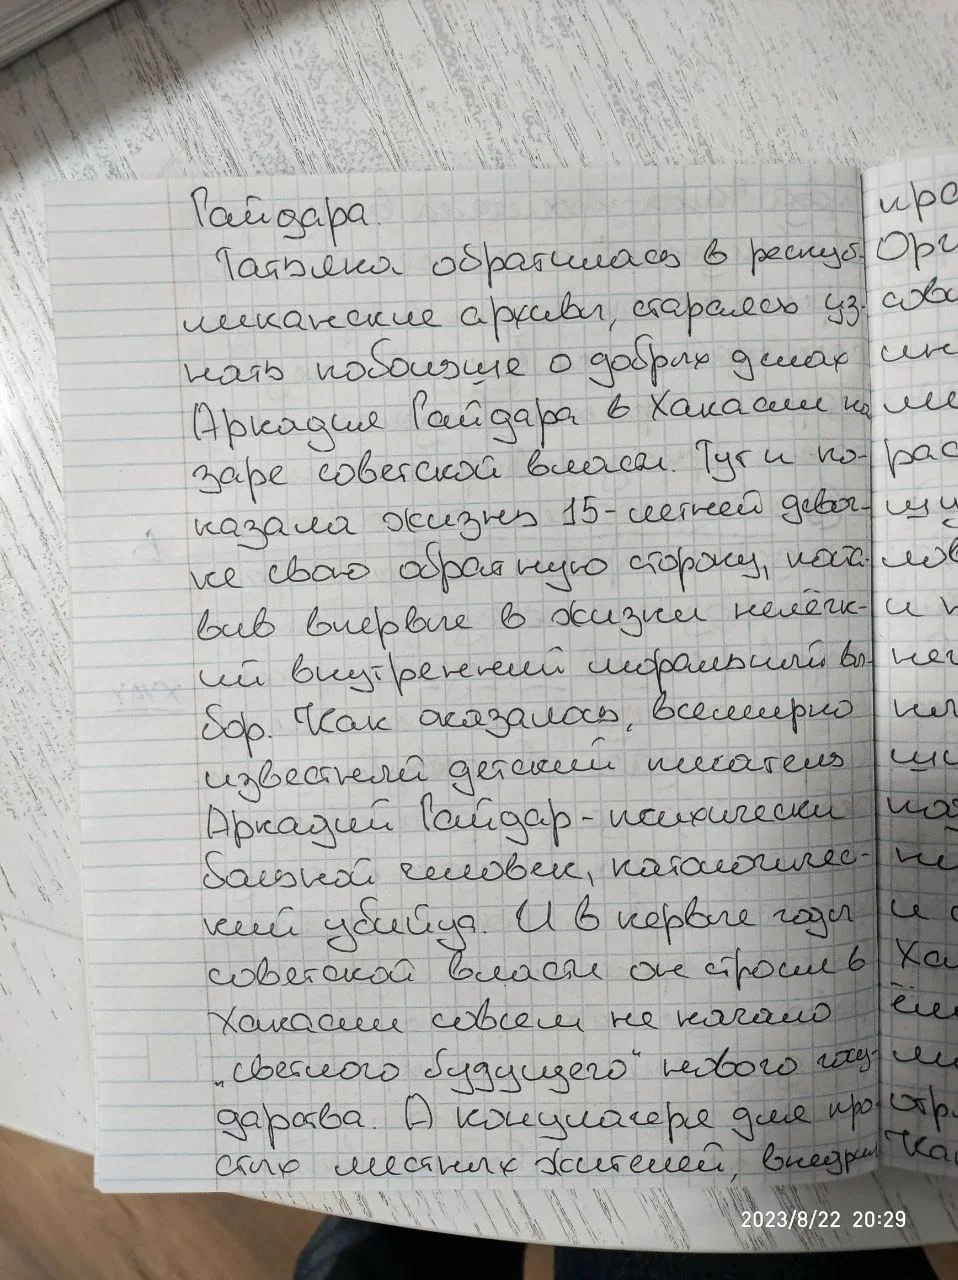 Гайдара.
Татьяна обратилась в респуб-
ликанские архивы, стараясь уз-
нать побольше о добрых делах
Аркадия Гайдара в Хакасии на
заре советской власти. Тут и по-
казала жизнь 15-летней девоч-
ке свою обратную сторону, поста-
вив впервые в жизни нелёгк-
ий внутренний моральный вы-
бор. Как оказалось, всемирно
известный детский писатель
Аркадий Гайдар - психически
больной человек, патологичес-
кий убийца. И в первые годы
советской власти он строил в
Хакасии совсем не начало
„светлого будущего" нового госу-
дарства. А концлагеря для про-
стых местных жителей, внедрил
про
Орг
сов
ин
ме
рас
щи
лов
и н
нег
ны
щи
под
не
и с
Ха
ём
ли
отр
Ка
2023/8/22 20:29